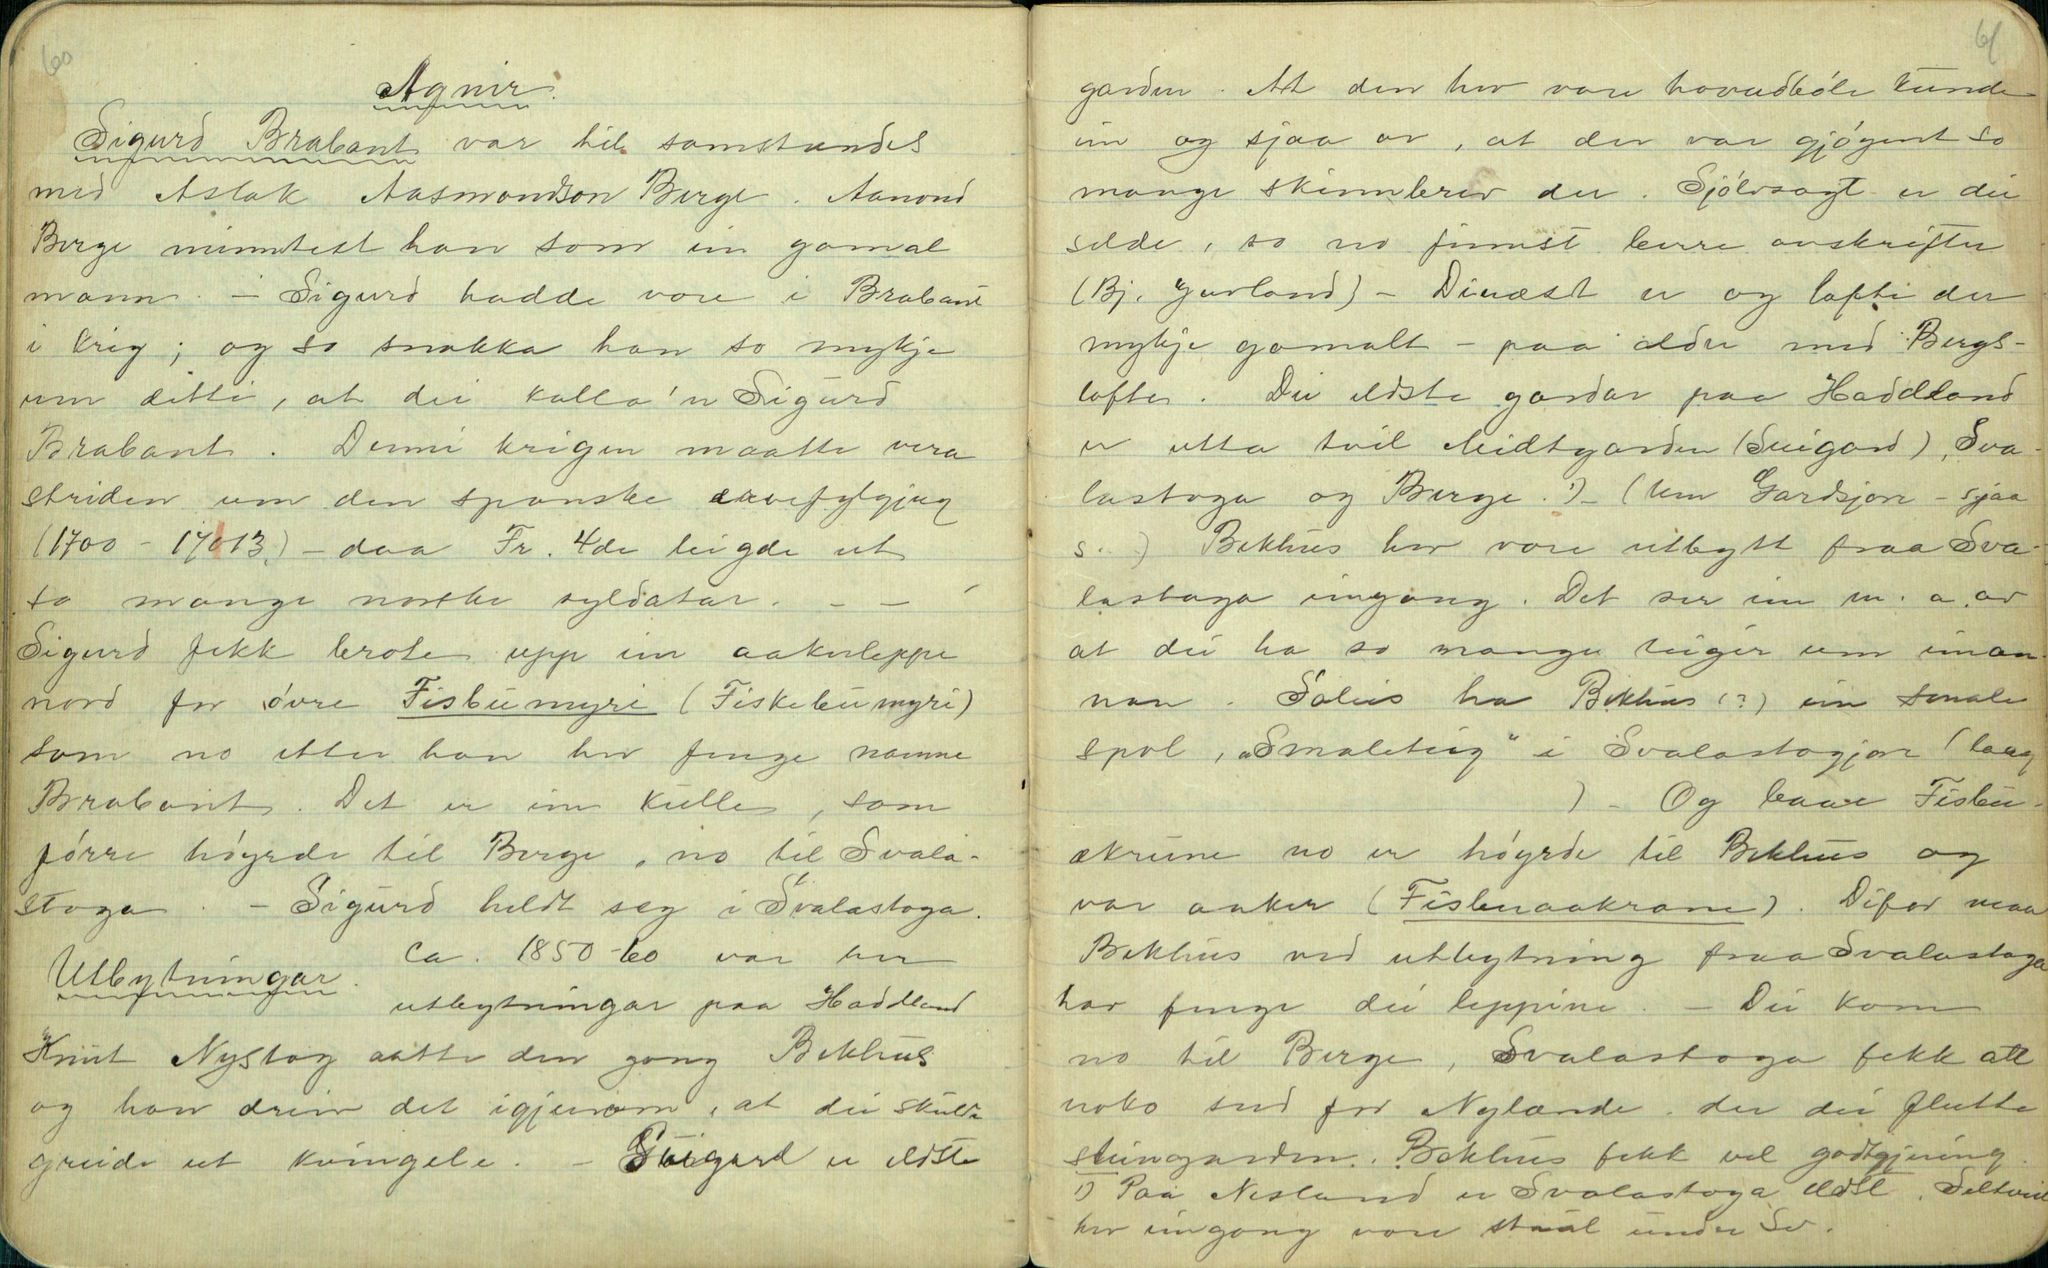 60
Agnir.
Sigurd Brabant var til samstundes
med Aslak Aasmondson Berge. Aanond
Berge minntest han som ein gamal
mann. – Sigurd hadde vore i Brabant
i krig; og so snakka han so mykje
um dette, at dei kalla'n Sigurd
Brabant. Denni krigen maatte vera
striden um den spanske arvefylgjug
(1700 – 1713) – daa Fr. 4de leigde ut
so mange norske syldatar. – –
Sigurd fekk brote upp ein aakerleppe
nord for øvre Fisbumyri (Fiskebumyri)
som no etter han hev fenge namne
Brabant. Det er ein kulle, som
fórre høyrde til Berge, no til Svala-
stoga. – Sigurd heldt seg i Svalastoga.
Utbytningar.
ca. 1850-60 var her
utbytningar paa Haddland
Knut Nystog aatte den gong Bekhus
og han dreiv det igjenom, at dei skulde
greide ut kvingele. – Suigard er eldste
61
garden. At den hev vore hovudbóle kunde
ein og sjaa av, at der var gjøgent so
mange skinnbrev der. Sjølvsagt er dei
selde, so no finnst berre avskrifter
(Bj. Gurland) – Dinæst er og lofti der
mykje gamalt – paa aldre med Bergs-
lofte. Dei eldste gardar paa Haddland
er utta tvil Midtgarden (Suigard), Sva-
lastoga og Berge. 1) – (Um Gardsjore – sjaa
s...) Bekhus hev vore utbytt fraa Sva-
lastoga eingong. Det ser ein m. a. av
at dei ha so mange teigir um einan-
nan. Soleis ha Bekhus (?) ein smale
spol, "Smaleteig" i Svalastogjore (laag
) – Og baae Fisbu-
ekrune no er høyrde til Bekhus og
var aaker (Fisbuaakrane). Difor maa
Bekhus ved utbytning fraa Svalastoga
hav fenge dei leppine. – Dei kom
no til Berge, Svalastoga fekk att
noko sud for Nylænde. der dei flutte
steingarden. Bekhus fekk vel godtgjering.
1) Paa Nesland er Svalastoga eldst. Seltveit
hev eingong vore støl under Sv.